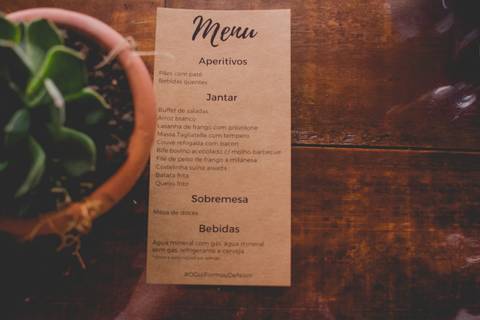 Menu
Aperitivos
Pães com patê
Bebidas quentes
Jantar
Buffet de saladas
Arroz branco
Lasanha de frango com provolone
Massa Tagliatelle com tempero
Couve refogada com bacon
Bife bovino acebolado c/ molho barbecue
Filé de peito de frango a milanesa
Costelinha suína assada
Batata frita
Queijo frito
Sobremesa
Mesa de doces
Bebidas
Água mineral com gás, água mineral
sem gás, refrigerante e cerveja